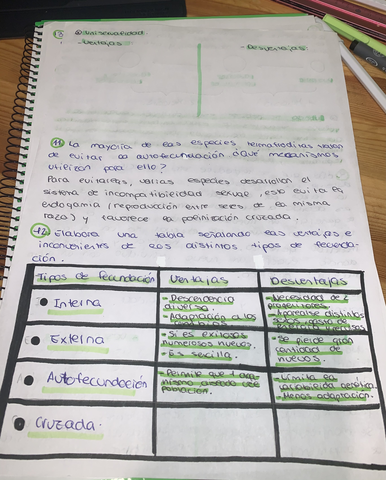 Unisexualidad
- Ventajas
- Desventajas
11 La mayoría de las especies hermafroditas tratan
de evitar la autofecundación ¿Qué mecanismos
utilizan para ello?
Para evitarlas, varias especies desarrollan el
sistema de incompatibilidad sexual, esto evita la
endogamia (reproducción entre seres de la misma
raza) y favorece la polinización cruzada.
12 Elabora una tabla señalando las ventajas e
inconvenientes de los distintos tipos de fecunda-
ción.
Tipos de fecundación Ventajas Desventajas
Interna
- Descendencia
diversa.
- Adaptación a los
- Necesidad de 2
progenitores.
- Aparearse distintos
Externa
- Si es exitosa
numerosos huevos.
- Es sencilla.
- Se pierde gran
cantidad de
huevos.
Autofecundación
- Permite que 1
población.
- Limita la
variabilidad genética.
- Menos adaptación.
Cruzada.